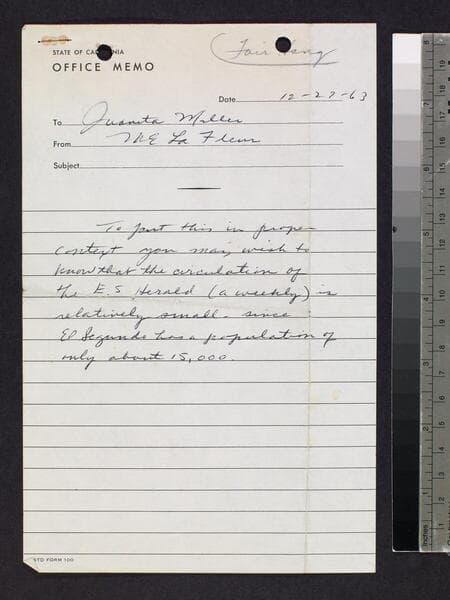 STATE OF CALIFORNIA
OFFICE MEMO
Fair
Date 12-27-63
To Juanita Miller
From ME La Fleur
Subject
To put this in proper
context you may wish to
know that the circulation of
the E.S Herald (a weekly) is
relatively small - since
El Segundo has a population of
only about 15,000.
STD FORM 100
Inches